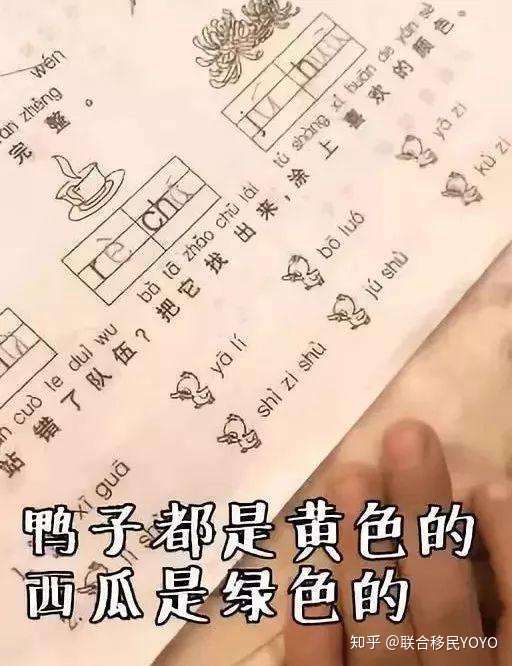 wén
zhěng
完整。
rè chá
jú huā
cuò le duì wu bǎ tā zhǎo chū lái tú shàng xǐ huān de yán
站错了队伍？把它找出来，涂上喜欢的颜色。
xī guā yā lí bō luó yā zi
2. shì zi shù jú shù kù zi
鸭子都是黄色的
西瓜是绿色的
知乎 @联合移民YOYO